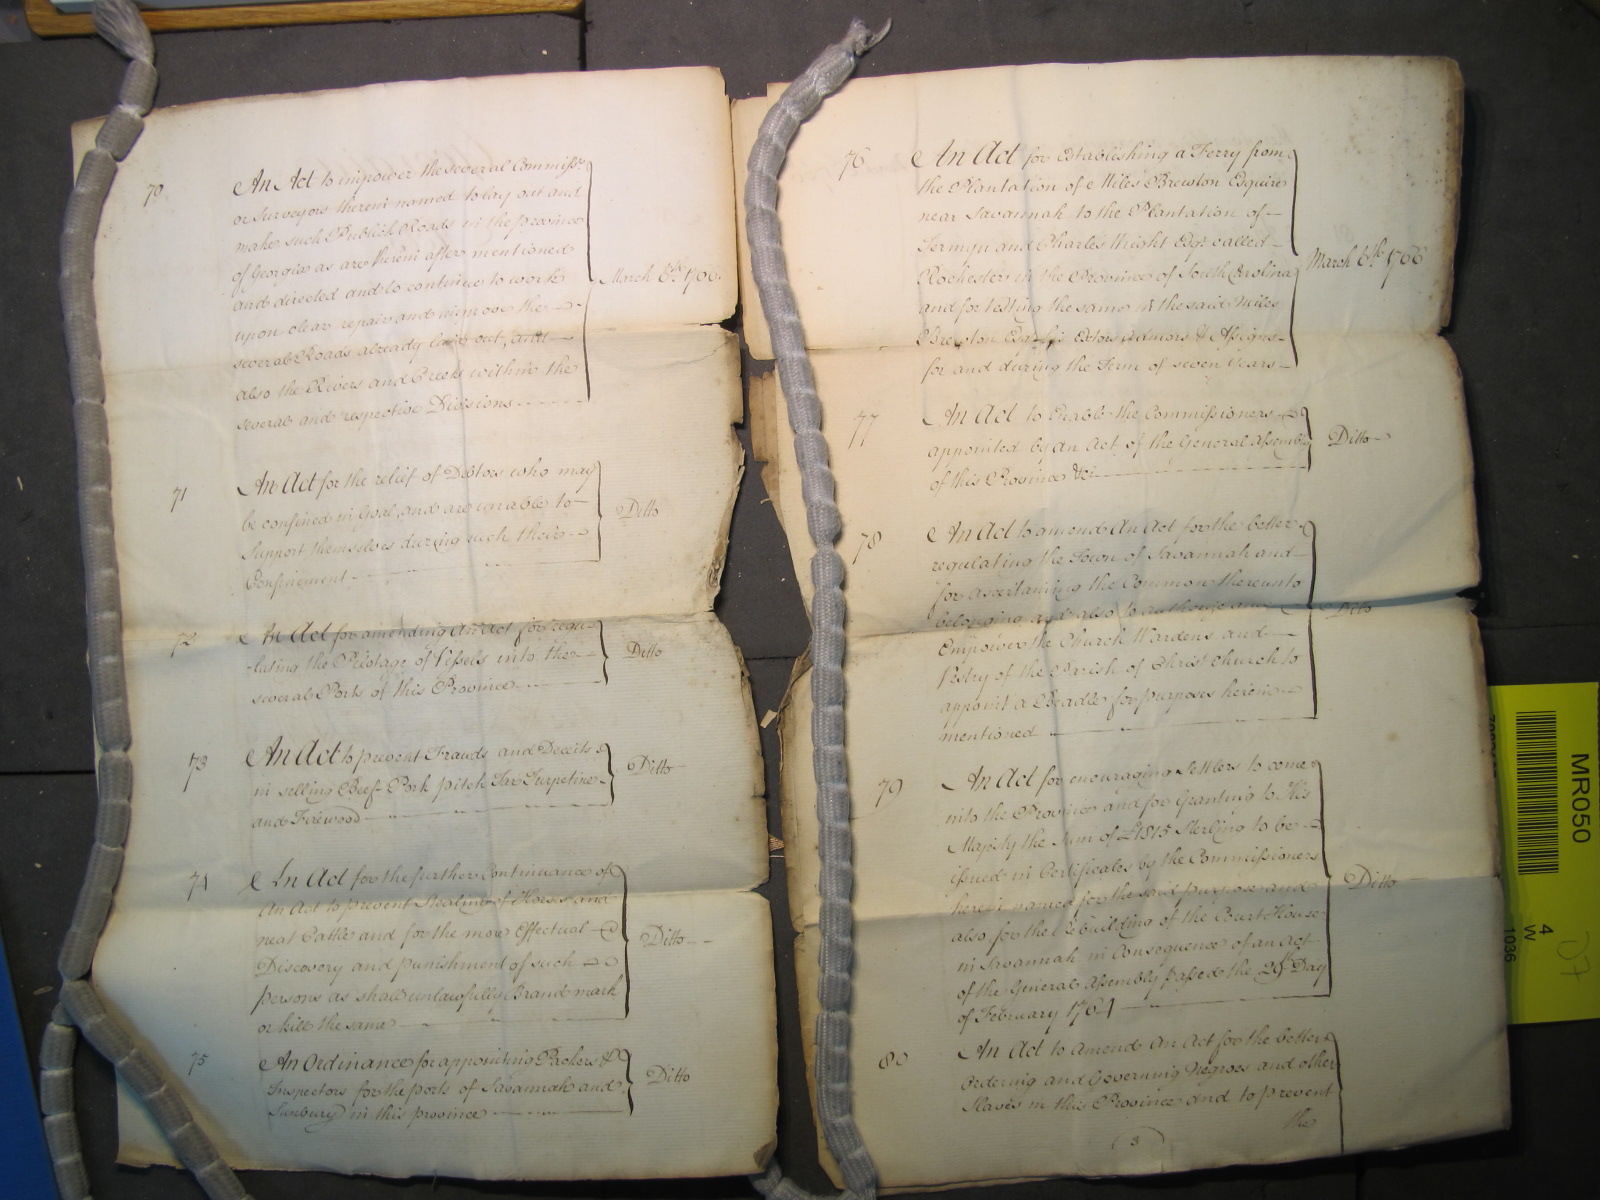 70
An Act to impower the several Commissrs
or Surveyors therein named to lay out and
make such Publick Roads in the province
of Georgia as are therein after mentioned
and directed and to continue to work
upon clear repair and improve the
several Roads already laid out, and
also the Rivers and Creeks within the
several and respective Divisions
March 6th 1766
71
An Act for the relief of Debtors who may
be confined in Goal, and are unable to
Support themselves during such their
Confinement
Ditto
72
An Act for amending An Act for regu-
-lating the Pilotage of Vessels into the
several Ports of this Province
Ditto
73
An Act to prevent Frauds and Deceits
in selling Beef Pork pitch Tar Turpetine
and Firewood
Ditto
74
An Act for the further Continuance of
An Act to prevent Stealing of Horses and
neat Cattle and for the more Effectual
Discovery and punishment of such
persons as shall unlawfully Brand mark
or kill the same
Ditto
75
An Ordinance for appointing Packers &
Inspectors for the ports of Savannah and
Sunbury in this province
Ditto
76
An Act for establishing a Ferry from
the Plantation of Miles Brewton Esquire
near Savannah to the Plantation of
Jermyn and Charles Wright Esqrs called
Rochester in the Province of South Carolina
and for vesting the same in the said Miles
Brewton Esqr his Extors Admors & Assigns
for and during the Term of seven Years
March 6th 1766
77
An Act to Enable the Commissioners
appointed by an Act of the General Assembly
of this Province &c
Ditto
78
An Act to amend An Act for the better
regulating the Town of Savannah and
for ascertaining the Common thereunto
belonging and also to authorize and
Empower the Church Wardens and
Vestry of the Parish of Christ Church to
appoint a Beadle for purposes herein
mentioned
Ditto
79
An Act for encouraging Settlers to come
into the Province and for Granting to His
Majesty the Sum of £1815 Sterling to be
issued in Certificates by the Commissioners
herein named for the said purpose and
also for the Rebuilding of the Court House
in Savannah in Consequence of an Act
of the General Assembly passed the 29th Day
of February 1764
Ditto
80
An Act to Amend An Act for the better
Ordering and Governing Negroes and other
Slaves in this Province and to prevent
the
3
MR050
4
W
1036